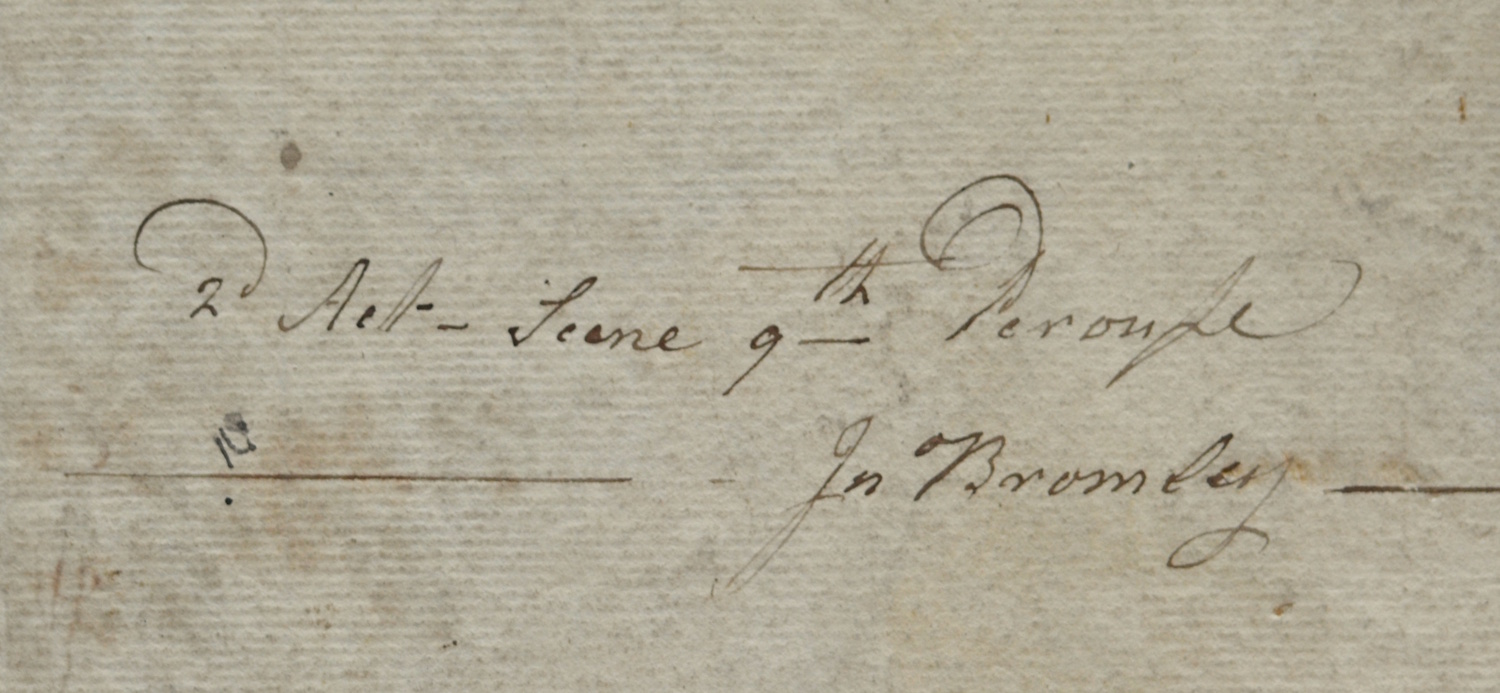 2d Act - Scene 9th Perouse
Jn Bromley